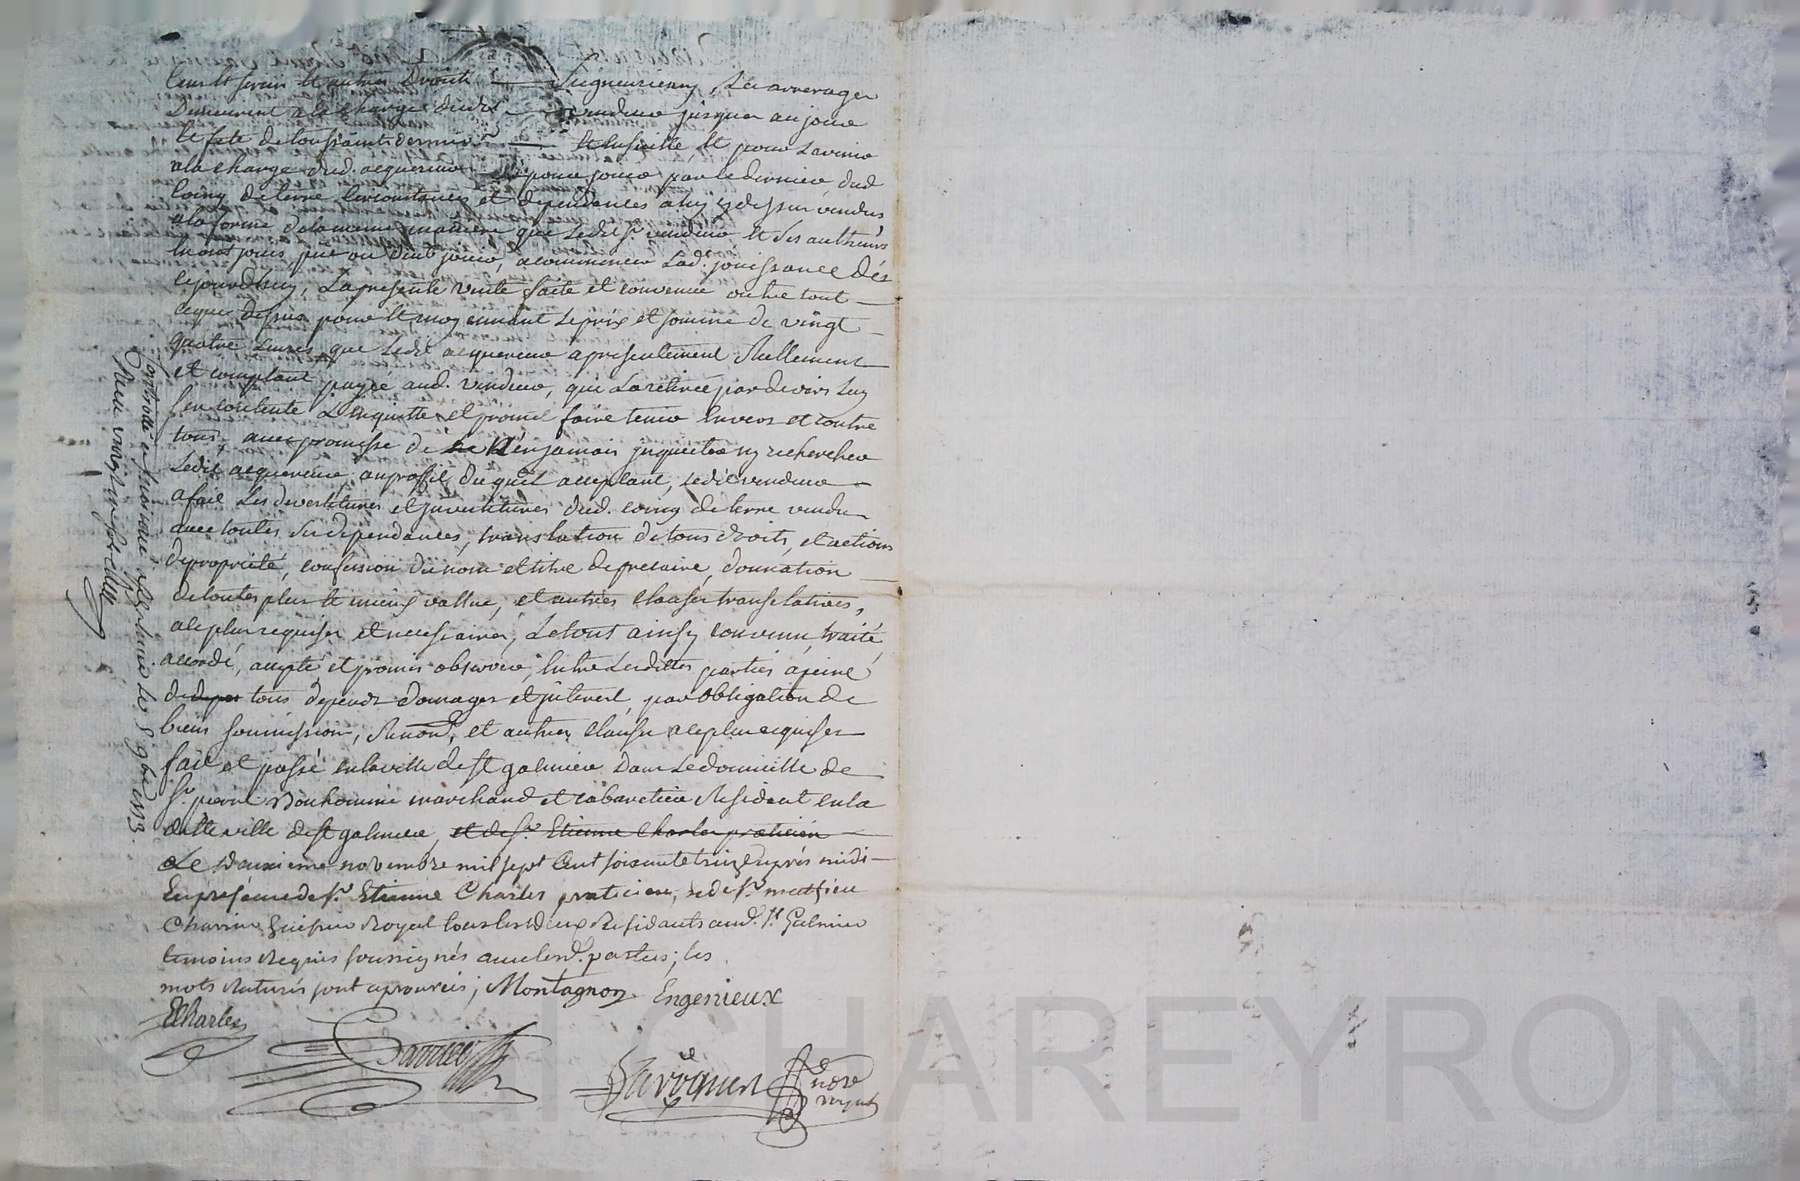 Cens et servis et autres droits — Seigneuriaux, Les arrerages
Demeurent a la charge dudit vendeur jusques au jour
et fete de toussaints dernier — et Ensuitte et pour Lavenir
a la charge dud. acquereur pour jouir par ce dernier dud
Coing de terre circonstances et dependances a luy cy dessus vendus
a la forme de la meme maniere que Ledit sr. vendeur et ses autheurs
en ont jouis, pûe ou deub jouir, a commencer Lad. jouissance dés
cejourdhuy, La presente vente faite et convenue outre tout —
ce que dessus pour et moyennant Le prix et somme de vingt —
quatre Livres que Ledit acquereur a presentement Réellement —
et comptant payée aud. vendeur, qui La retirée par devers Luy
sen contente Len quitte et promet faire tenir Envers et contre
tous, avec promesse de N'en jamais inquieter ny rechercher
Ledit acquereur, au proffit duquel acceptant, Ledit vendeur —
a fait Les devestitures et investitures dud. coing de terre vendu
avec toutes ses dependances, translation de tous droits, et actions
de proprieté, confession du nom et titre de precaire, donnation —
de toutes plus et mieux vallue, et autres clauses translatives,
a ce plus requises et necessaires, Le tout ainsy convenu, traité,
accordé, accepté et promis observer, Entre Lesdittes parties a peine
de tous depends domages et interest, par obligation de
biens soumissions, Renond. et autres clauses a ce plus requises
fait et passé en la ville de st galmier dans Le domicille de
sr. pierre Bonhomme marchand et cabaretier Resident en la
ditte ville de st galmier, et de sr. Etienne Charles praticien —
Le deuxieme novembre mil sept Cent soixante treize aprés midi —
En presence de sr. Etienne Charles praticien, et de sr. mathieu
Charrin huissier Royal tous les deux Residants aud. st. Galmier
temoins Requis soussignés avec lesd. parties; les
mots Raturés sont aprouvés; Montagnon Engenieux
ECharles
not.re
royal
Controllé
le 8 9bre 1773.
ROSSI CHAREYRON